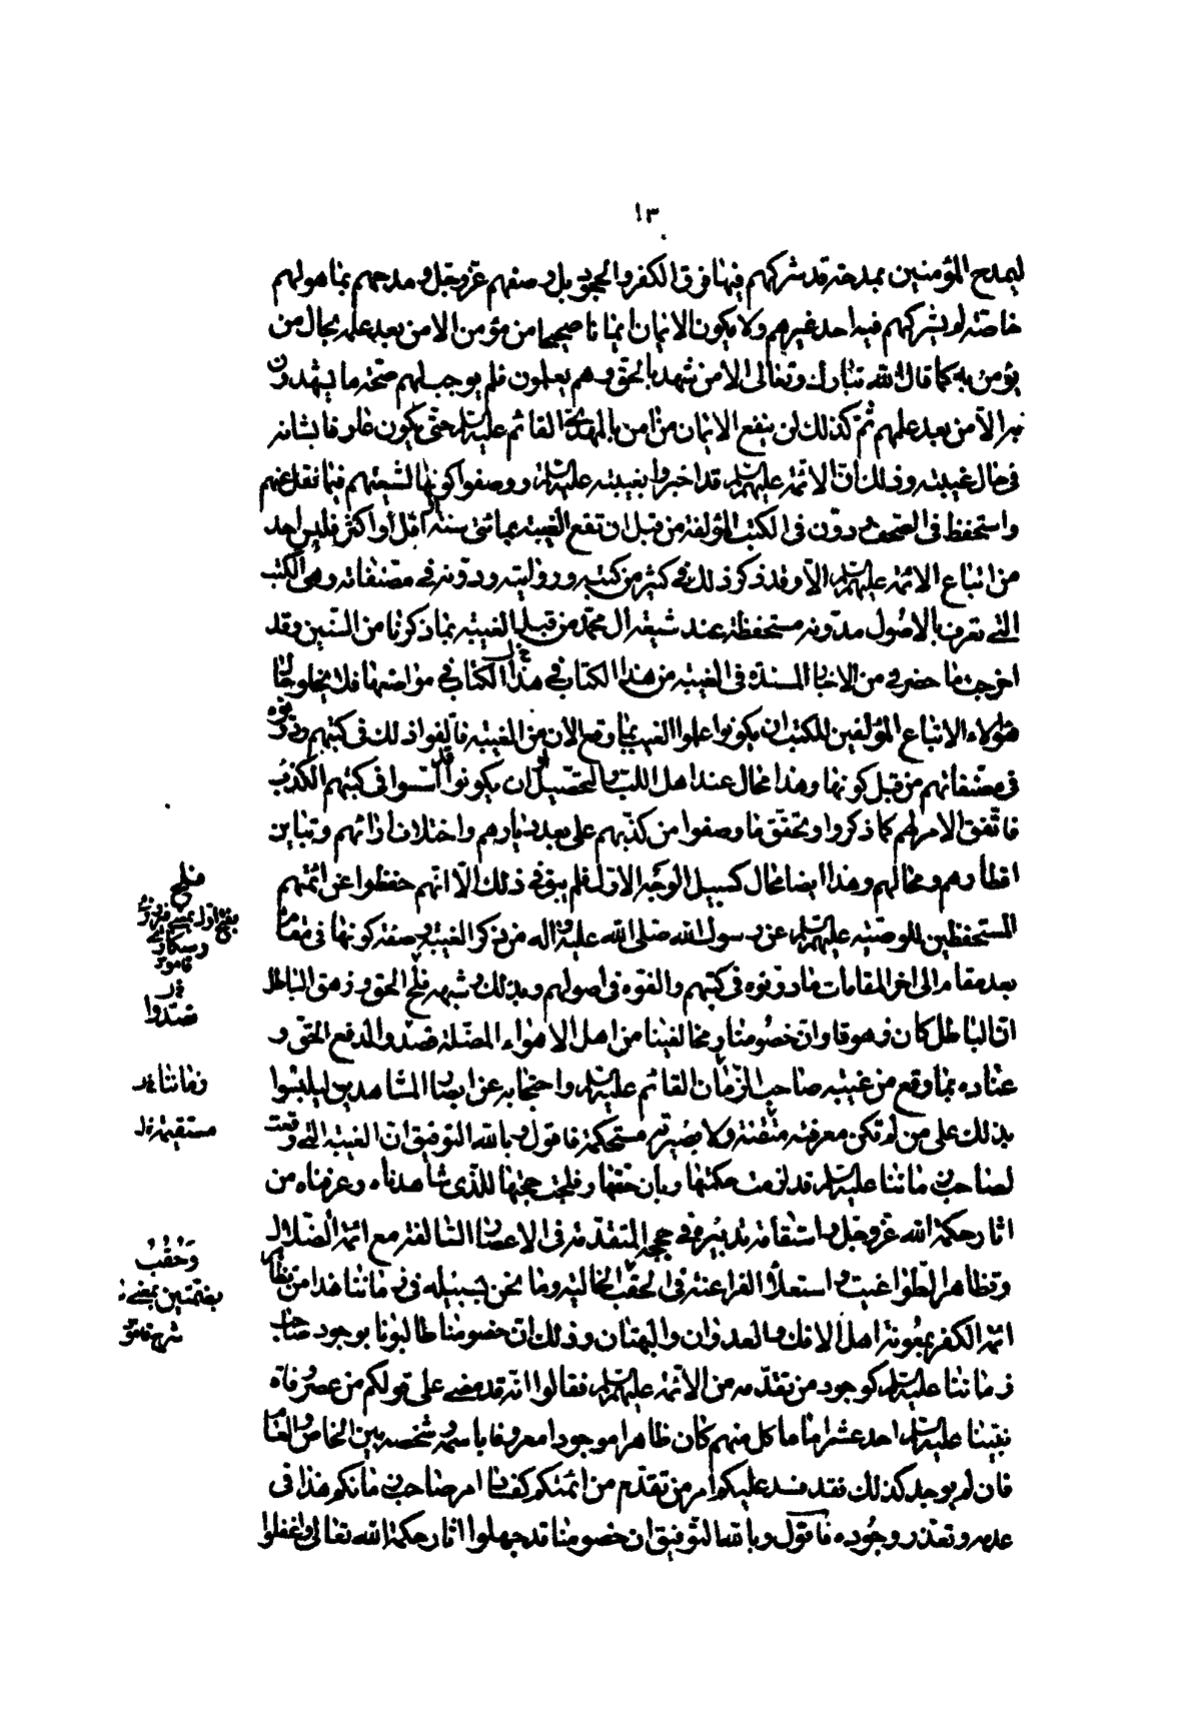 ١٣
ليمدح المؤمنين بمدحة قد شركهم فيها فرق الكفر والجحود بل وصفهم عز وجل ومدحهم بما هو لهم
خاصة لم يشركهم فيه احد غيرهم ولا يكون الايمان ايمانا صحيحا من مؤمن الا من بعد علمه بحال من
يؤمن به كما قال الله تبارك وتعالى الا من شهد بالحق وهم يعلمون فلم يوجب لهم صحة ما يشهدون
به الا من بعد علمهم ثم كذلك لن ينفع الايمان من امن بالمهدي القائم عليه السلم حتى يكون عارفا بشانه
في حال غيبته وذلك ان الائمة عليهم السلم قد اخبروا بغيبته عليه السلم ووصفوا كونها لشيعتهم فيما نقل عنهم
واستحفظ في الصحف ودون في الكتب المؤلفة من قبل ان تقع الغيبة بمائتي سنة او اقل او اكثر فليس احد
من اتباع الائمة عليهم السلم الا وقد ذكر ذلك في كثير من كتبه ورواياته ودونه في مصنفاته وهي الكتب
التي تعرف بالاصول مدونة مستحفظة عند شيعة ال محمد من قبل الغيبة بما ذكرنا من السنين وقد
اخرجت ما حضرني من الاخبار المسندة في الغيبة من هذا الكتاب في هذا الكتاب في مواضعها فلا يخلو حال
هؤلاء الاتباع المؤلفين للكتب ان يكونوا علموا الغيب بما وقع الان من الغيبة فالفوا ذلك في كتبهم ودونوه
في مصنفاتهم من قبل كونها وهذا محال عند اهل اللب والتحصيل او ان يكونوا قد اسسوا في كتبهم الكذب
فاتفق الامر لهم كما ذكروا وتحقق ما وصفوا من كذبهم على بعد ديارهم واختلاف ارائهم وتباين
اقطارهم ومحالهم وهذا ايضا محال كسبيل الوجه الاول فلم يبق في ذلك الا انهم حفظوا عن ائمتهم
المستحفظين للوصية عليهم السلم عن رسول الله صلى الله عليه واله من ذكر الغيبة وصفة كونها في مقام
بعد مقام الى اخر المقامات ما دونوه في كتبهم والفوه في اصولهم وبذلك وشبهه فلج الحق وزهق الباطل
ان الباطل كان زهوقا وان خصومنا ومخالفينا من اهل الاهواء المضلة قصدوا لدفع الحق و
عناده بما وقع من غيبة صاحب الزمان القائم عليه السلم واحتجابه عن ابصار المشاهدين ليلبسوا
بذلك على من لم تكن معرفته متقنة ولا بصيرته مستحكمة فاقول وبالله التوفيق ان الغيبة التي وقعت
لصاحب زماننا عليه السلم قد لزمت حكمتها وبان حقها وفلجت حجتها للذي شاهدناه وعرفناه من
اثار حكمة الله عز وجل واستقامة تدبيره في حججه المتقدمة في الاعصار السالفة مع ائمة الضلال
وتظاهر الطواغيت واستعلاء الفراعنة في الحقب الخالية وما نحن بسبيله في زماننا هذا من تظاهر
ائمة الكفر بمعونة اهل الافك والعدوان والبهتان وذلك ان خصومنا طالبونا بوجود صاحب
زماننا عليه السلم كوجود من تقدمه من الائمة عليهم السلم فقالوا انه قد مضى على قولكم من عصر وفاة
نبينا عليه السلم احد عشر اماما كل منهم كان ظاهرا موجودا معروفا باسمه وشخصه بين الخاص والعام
فان لم يوجد كذلك فقد فسد عليكم امر من تقدم من ائمتكم كفساد امر صاحب زمانكم هذا في
عدمه وتعذر وجوده فاقول وبالله التوفيق ان خصومنا قد جهلوا اثار حكمة الله تعالى واغفلوا
فلج
قاموس
قصدوا
زماننا
مستقيمة
وحقب
بضمتين بمعنى
شرح قاموس